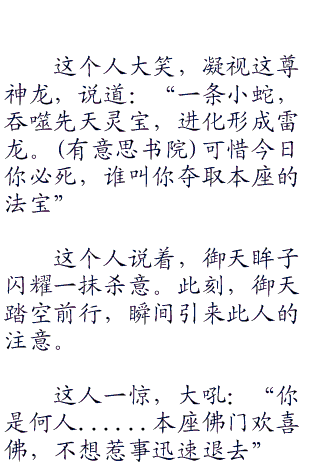 这个人大笑，凝视这尊
神龙，说道：“一条小蛇，
吞噬先天灵宝，进化形成雷
龙。(有意思书院)可惜今日
你必死，谁叫你夺取本座的
法宝”
这个人说着，御天眸子
闪耀一抹杀意。此刻，御天
踏空前行，瞬间引来此人的
注意。
这人一惊，大吼：“你
是何人......本座佛门欢喜
佛，不想惹事迅速退去”